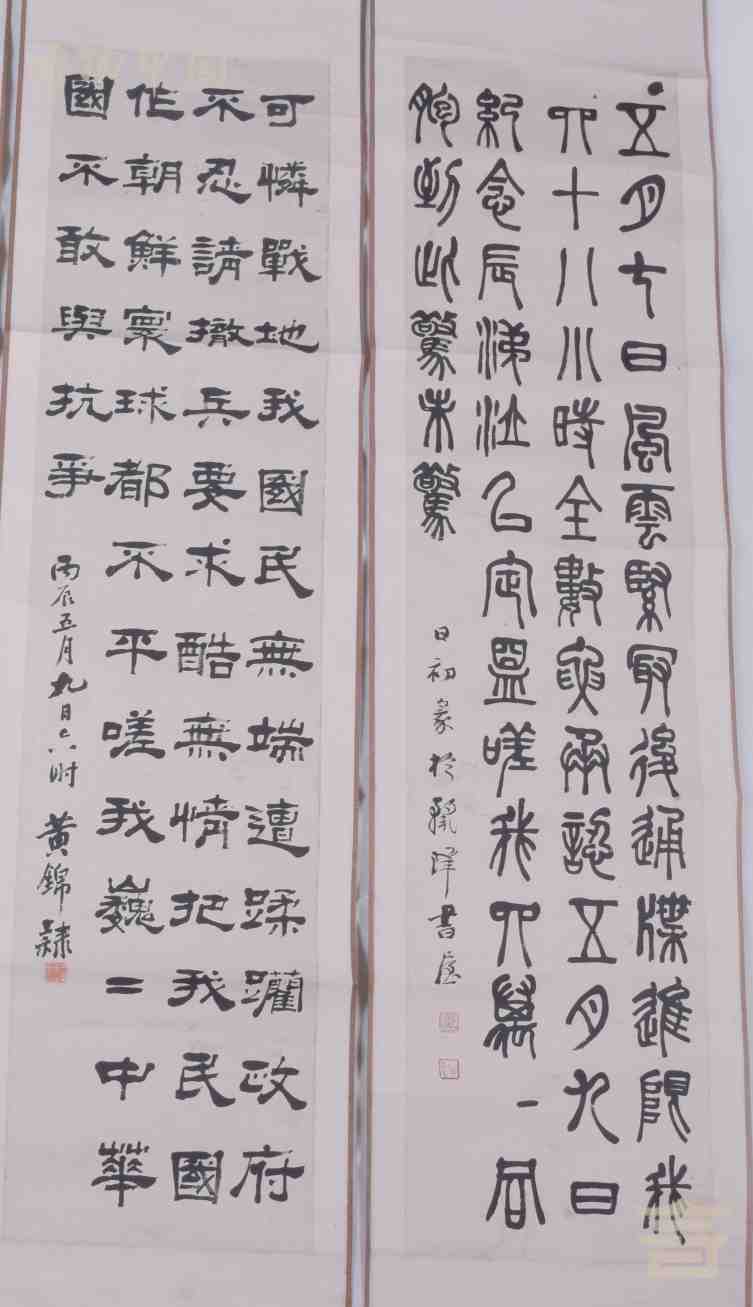 五月七日風雲緊冣後通牒進限我
四十八小時全數要承認五月九日
紀念辰涕泣以定盟嗟我四萬一同
胞到此驚未驚
日初篆於麗澤書屋
可憐戰地我國民無端遭蹂躪政府
不忍請撤兵要求酷無情把我民國
作朝鮮寰球都不平嗟我巍二中華
國不敢與抗爭
丙辰五月九日六时 黃錦隸